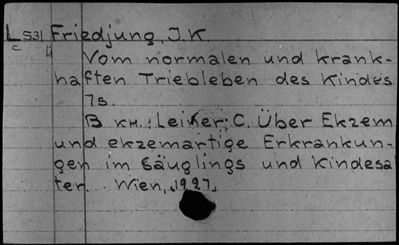 L 531 Friedjung, J.K.
c 4
Vom normalen und krank-
haften Triebleben des Kindes
7s.
В кн.: Leiner, C. Über Ekzem
und ekzemartige Erkrankun-
gen im Säuglings und Kindesal
ter. Wien, 1927.